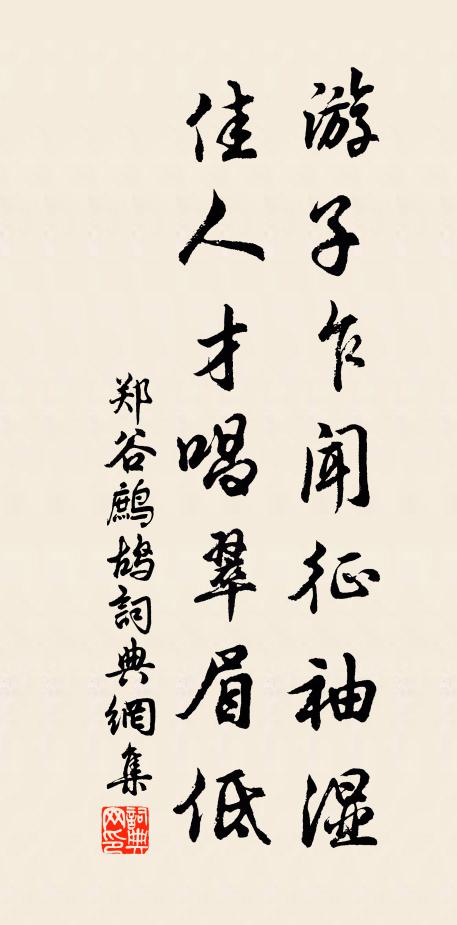 游子乍闻征袖湿
佳人才唱翠眉低
郑谷鹧鸪詞典網集
詞典
网印